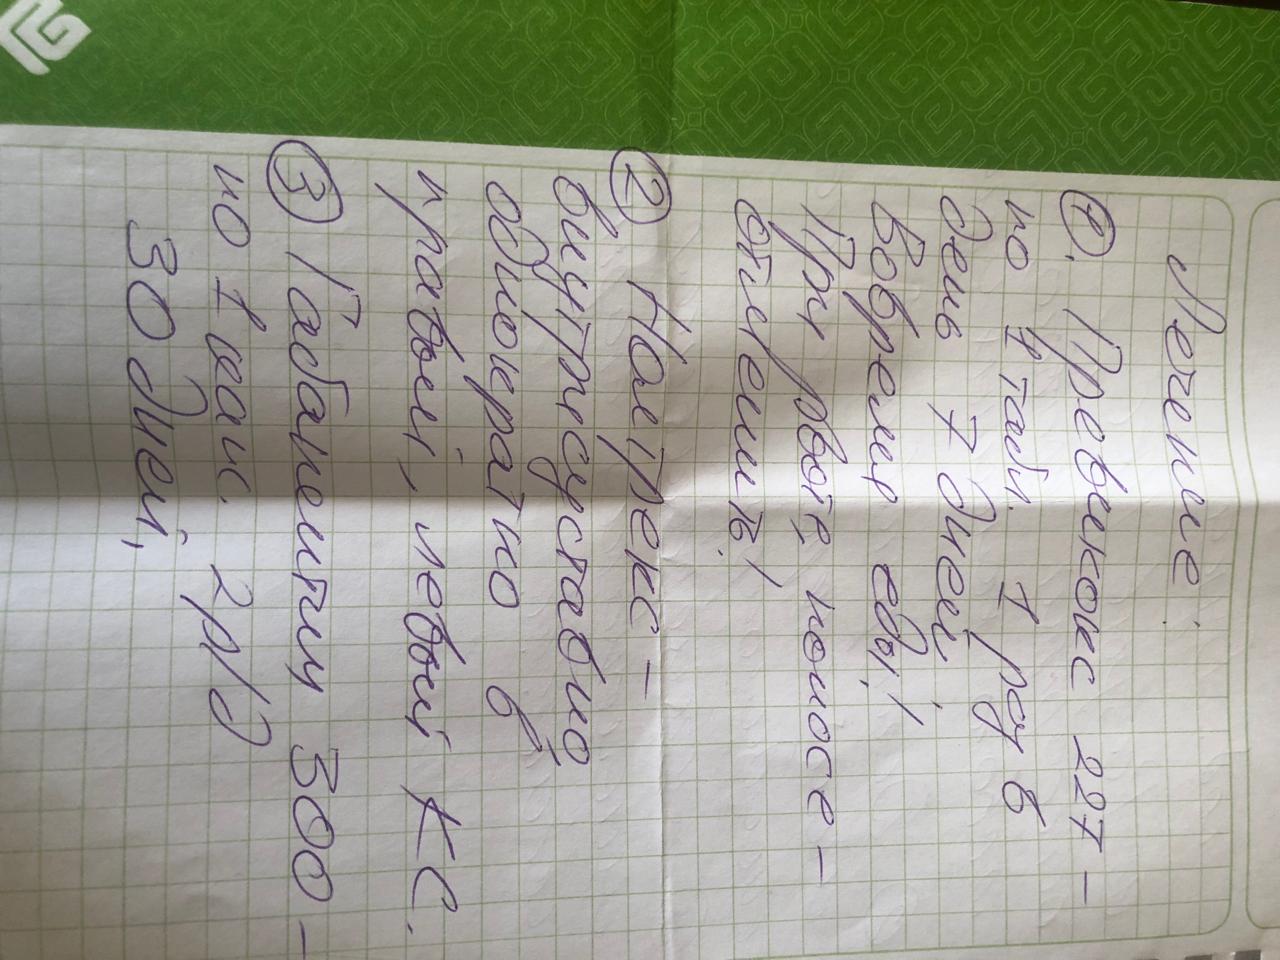 Лечение:
①. Превикокс 227 –
по 1 табл. 1 раз в
день 7 дней,
Вовремя еды!
При рвоте, поносе –
отменить!
② Ноltрекс –
внутрисуставно
однократно в
правый, левый КС.
③ Габапентин 300 –
по 1 капс. 2р/д
30 дней,